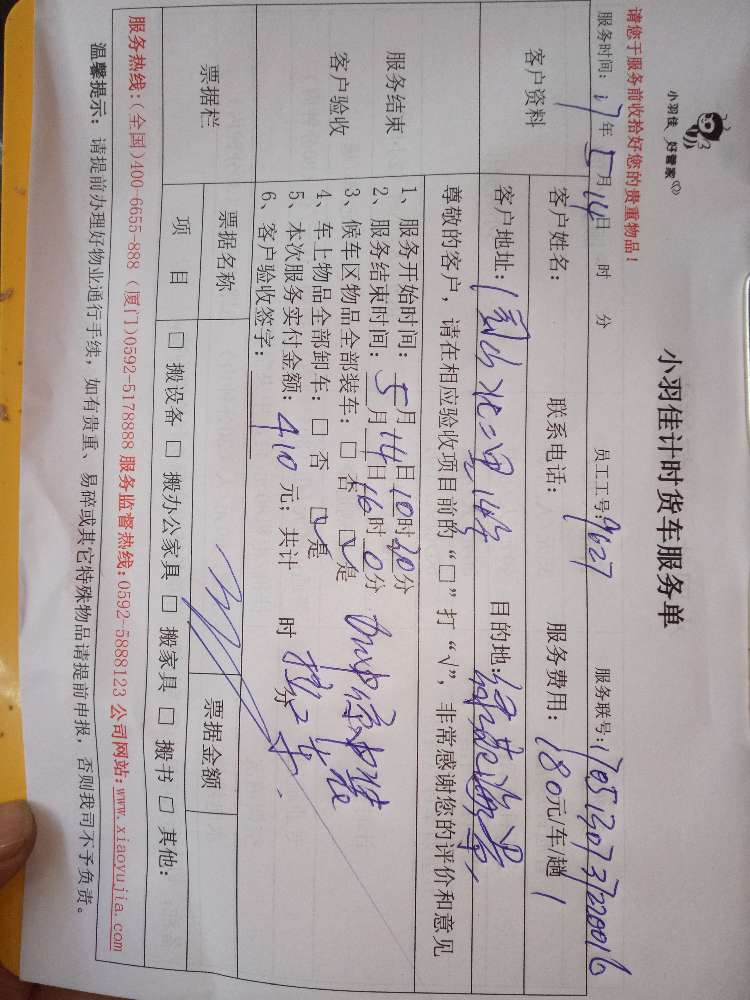 小羽佳 好管家
请您于服务前收拾好您的贵重物品!
小羽佳计时货车服务单
服务时间: 17年5月14日 时 分 员工工号: 9627 服务联号: 1705130737220016
客户资料
客户姓名: 联系电话: 服务费用: 180元/车/趟
客户地址: 目的地:
尊敬的客户,请在相应验收项目前的“□”打“√”,非常感谢您的评价和意见
服务结束
客户验收
1、服务开始时间: 5月14日10时30分
2、服务结束时间: 5月14日16时0分
3、候车区物品全部装车: □ 否 ☑ 是
4、车上物品全部卸车: □ 否 ☑ 是
5、本次服务实付金额: 410 元; 共计 时 分
6、客户验收签字:
票据栏
票据名称 票据金额
项 目 □ 搬设备 □ 搬办公家具 □ 搬家具 □ 搬书 □ 其他:
服务热线:(全国)400-6655-888 (厦门)0592-5178888 服务监督热线:0592-5888123 公司网站:www.xiaoyujia.com
温馨提示: 请提前办理好物业通行手续,如有贵重、易碎或其它特殊物品请提前申报,否则我司不予负责。